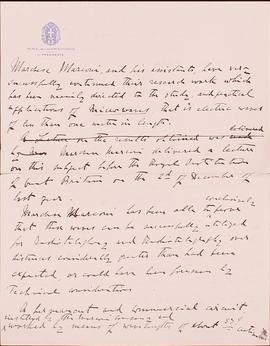 REALE ACCADEMIA D'ITALIA
IL PRESIDENTE
Marchese Marconi and his assistants, have very
successfully continued their research work which
has been mainly directed to the study and practical
applications of microwaves that is electric waves
of less than one meter in length.
on the results obtained was delivered
Marchese Marconi delivered a lecture
on this subject before the Royal Institution
of Great Britain on the 2nd of December of
last year.
Marchese Marconi has been able to prove conclusively
that these waves can be successfully utilized
for Radiotelegraphy and Radiotelephony over
distances considerably greater than had been
expected, or could have been foreseen by
technical considerations
A permanent and commercial circuit
installed by the Marconi Company and
worked by means of wavelengths of about